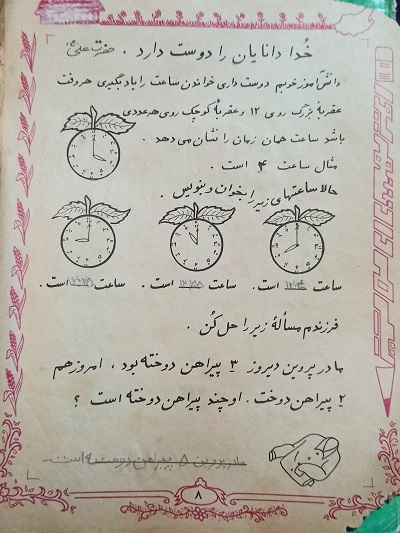 خدا دانایان را دوست دارد . حضرت علی ع
دانش آموز خوبم دوست داری خواندن ساعت را یاد بگیری هر وقت
عقربهٔ بزرگ روی ۱۲ و عقربهٔ کوچک روی هر عددی
باشد ساعت همان زمان را نشان می دهد .
مثال ساعت ۴ است .
حالا ساعتهای زیر را بخوان و بنویس .
ساعت است . ساعت است . ساعت است .
فرزندم مسألهٔ زیر را حل کُن .
مادر پروین دیروز ۳ پیراهن دوخته بود ، امروز هم
۲ پیراهن دوخت . او چند پیراهن دوخته است ؟
مادر پروین ۵ پیراهن دوخته است .
۸